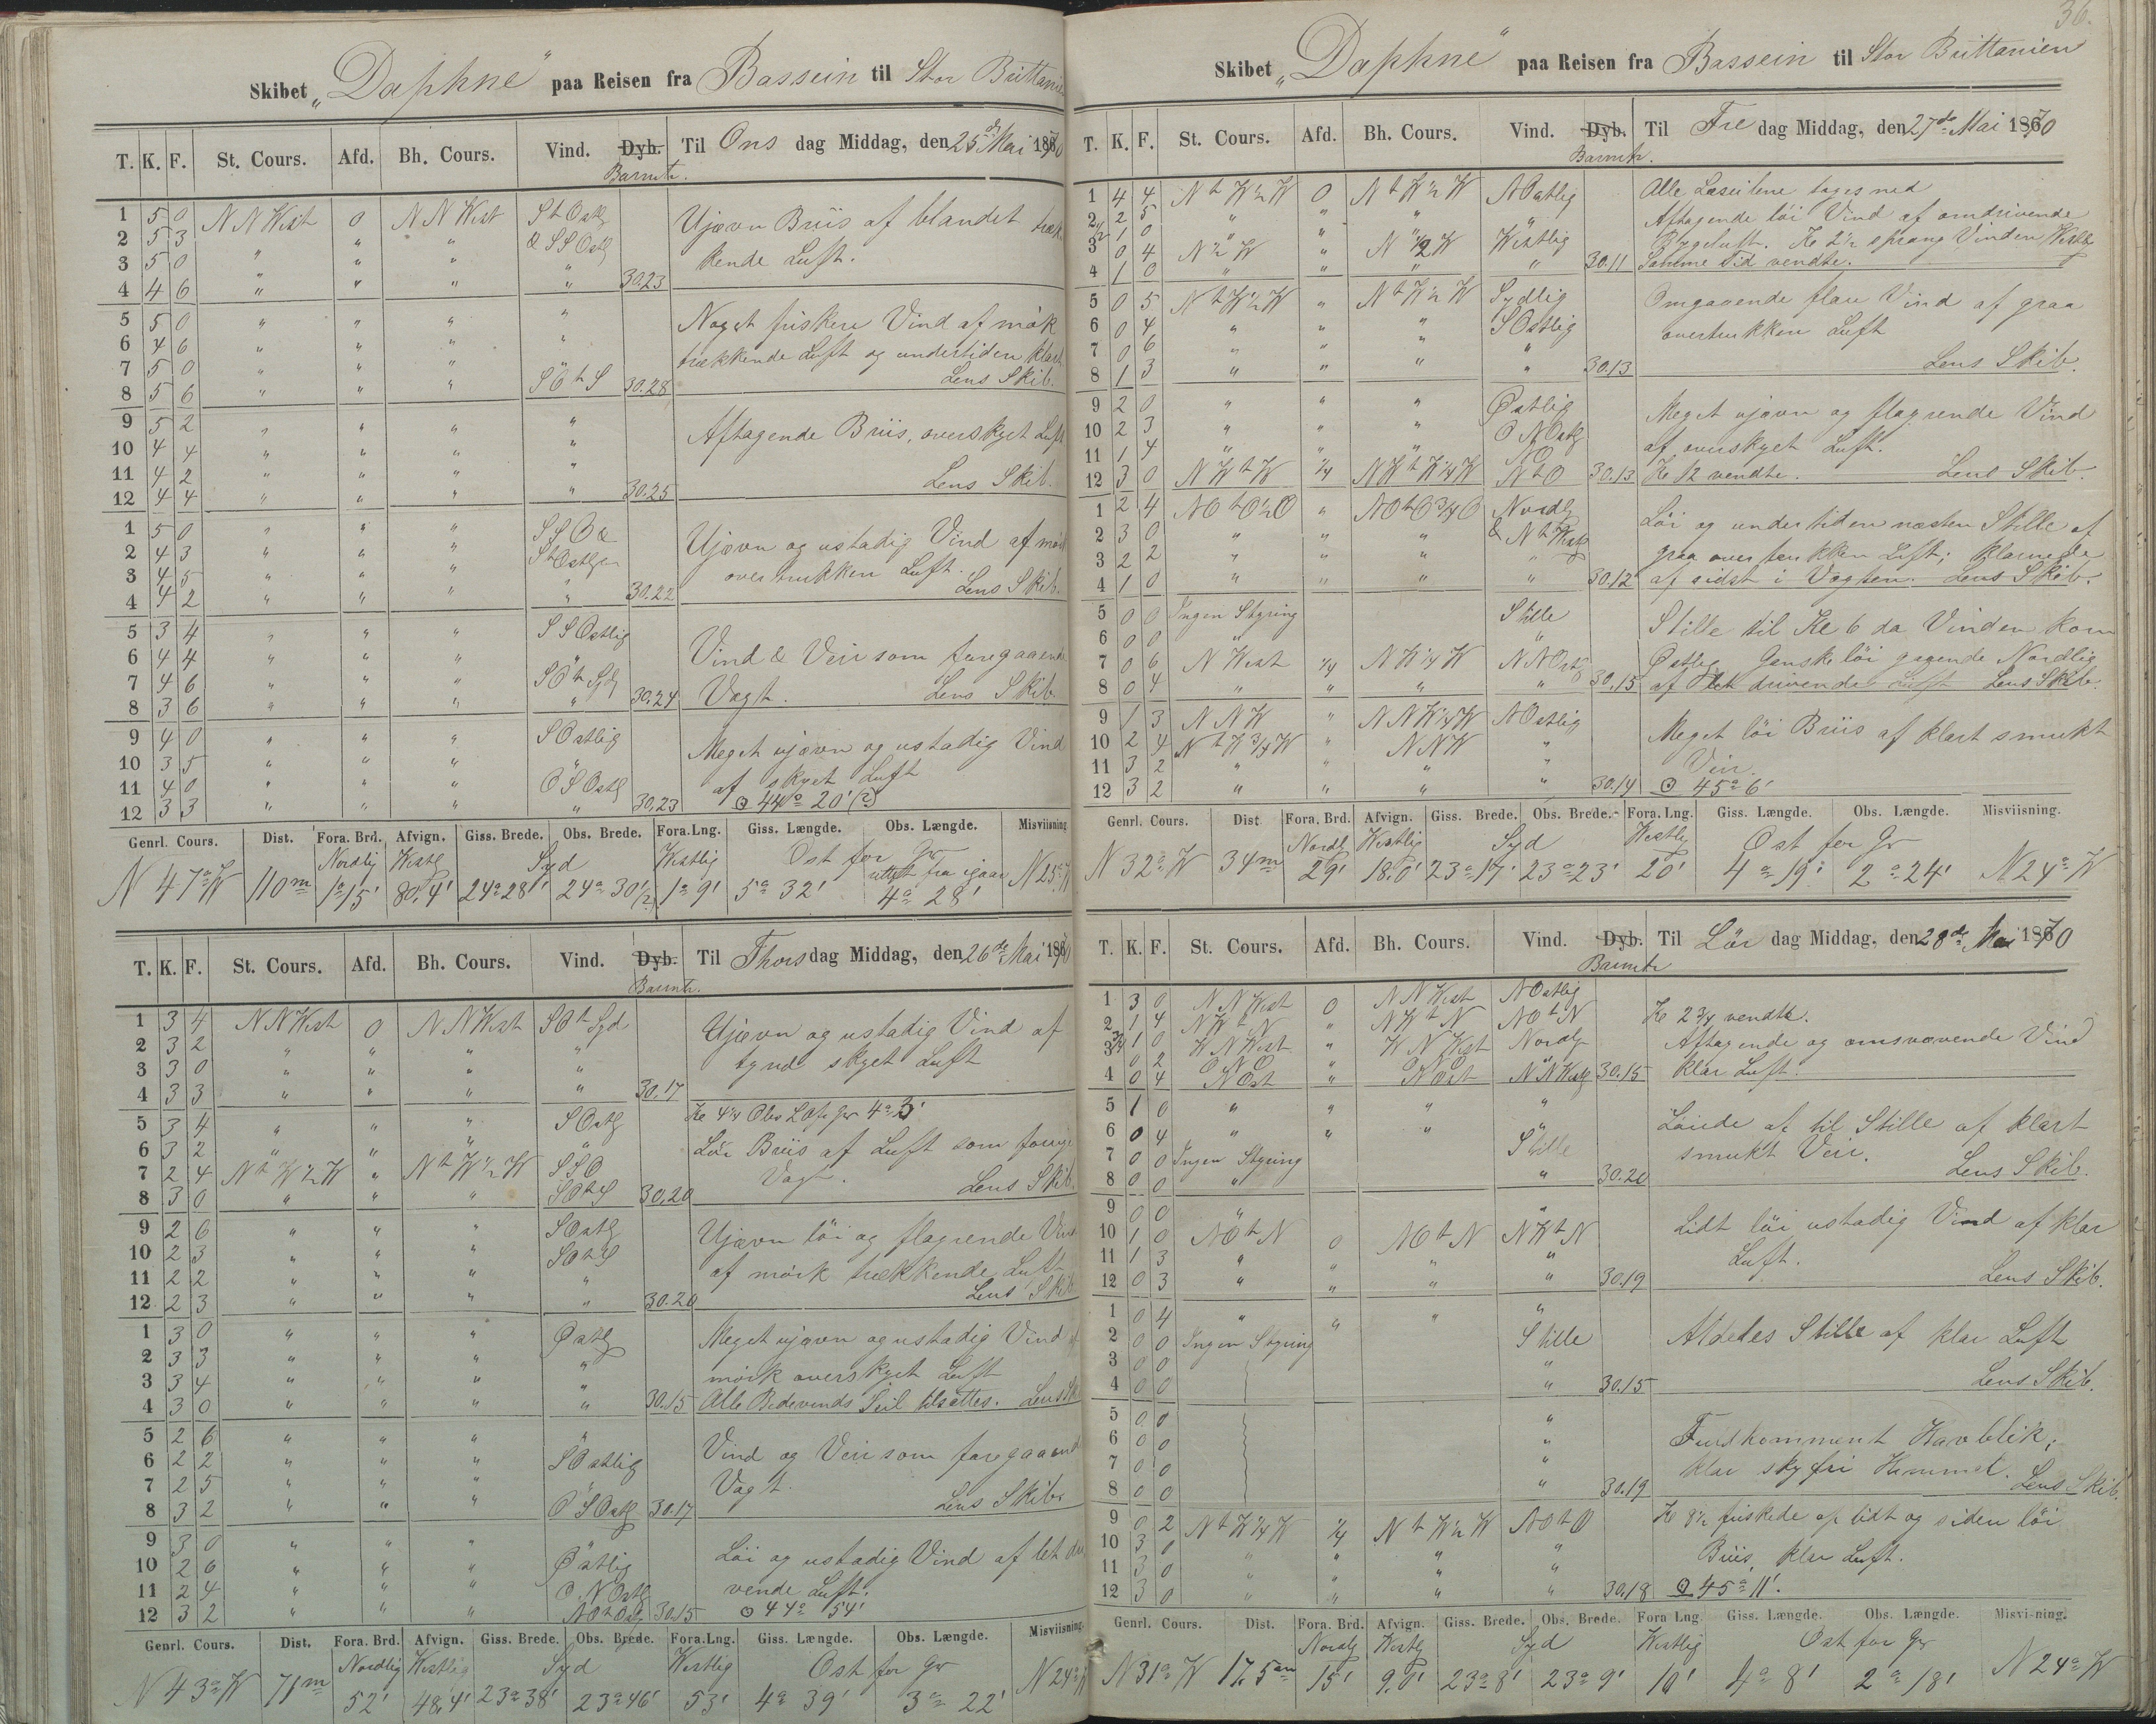 Skibet „Daphne" paa Reisen fra Bassein til Stor Brittanien
T. K. F. St. Cours. Afd. Bh. Cours. Vind. Dyb. Barmtr. Til Onsdag Middag, den 25de Mai 1870
1 5 0 NNWest 0 NNWest StOstlig
2 5 3 " " " & SSOstlig
3 5 0 " " " "
4 4 6 " " " " 30.23
Ujævn Briis af blandet træk
kende Luft.
5 5 0 " " " "
6 4 6 " " " "
7 5 0 " " " "
8 5 6 " " " SOtS 30.28
Noget friskere Vind af mørk
trækkende Luft og undertiden klart
Lens Skib.
9 5 2 " " " "
10 4 4 " " " "
11 4 2 " " " "
12 4 4 " " " " 30.25
Aftagende Briis, overskyet Luft
Lens Skib.
1 5 0 " " "
2 4 3 " " "
3 4 5 " " "
4 4 2 " " " " 30.22
Ujævn og ustadig Vind af mørk
overtrukken Luft.
Lens Skib.
5 3 4 " " " SSOstlig
6 4 4 " " " "
7 4 6 " " " SOtSyd
8 3 6 " " " " 30.24
Vind & Veir som foregaaende
Vagt. Lens Skib
9 4 0 " " " SOstlig
10 3 5 " " " "
11 4 0 " " " OSOstlg
12 3 3 " " " " 30.23
Meget ujævn og ustadig Vind
af skyet Luft
⊙ 44° 20' (?)
Genrl. Cours. Dist. Fora. Brd. Afvign. Giss. Brede. Obs. Brede. Fora. Lng. Giss. Længde. Obs. Længde. Misviisning
Nordlig Westlg Syd Westlig Ost for Gr
N 47° W 110m 1° 15' 80,4' 24° 28' 24° 30' (?) 1° 9' 5° 32' 4° 28' N 25° W
T. K. F. St. Cours. Afd. Bh. Cours. Vind. Dyb. Barmtr. Til Thorsdag Middag, den 26de Mai 1870
1 3 4 NNWest 0 NNWest SOtSyd
2 3 2 " " " "
3 3 0 " " " "
4 3 3 " " " " 30.17
Ujævn og ustadig Vind af
tynd skyet Luft
5 3 4 " " " SOstlg
6 3 2 " " " "
7 2 4 NtW½W " NtW½W SSO
8 3 0 " " " SOtS 30.20
Kl 4½ Obs L Ofr Gr 4° 3'
Løi Briis af Luft som forrige
Vagt. Lens Skib.
9 2 6 " " " SOstlg
10 2 3 " " " SOtS
11 2 2 " " " "
12 2 3 " " " " 30.20
Ujævn løi og flagrende Vind
af mørk trækkende Luft
Lens Skib
1 3 0 " " " Østlg
2 3 3 " " " "
3 3 4 " " " "
4 3 0 " " " " 30.15
Meget ujævn og ustadig Vind af
mørk overskyet Luft
Alle Bidevinds Seil tilsættes. Lens Skib
5 2 6 " " " "
6 2 2 " " " SOstlig
7 2 5 " " " "
8 3 2 " " " OSOstlg 30.17
Vind og Veir som foregaaende
Vagt. Lens Skib.
9 3 0 " " " "
10 2 6 " " " Østlig
11 2 4 " " " ONOstlg
12 3 2 " " " NOtOstlg 30.15
Løi og ustadig Vind af let dri
vende Luft.
⊙ 44° 54'
Genrl. Cours. Dist. Fora. Brd. Afvign. Giss. Brede. Obs. Brede. Fora. Lng. Giss. Længde. Obs. Længde. Misviisning
Nordlig Westlig Syd Westlig Ost for Gr
N 43° W 71m 52' 48,4' 23° 38' 23° 46' 53' 4° 39' 3° 22' N 24° W
36.
Skibet „Daphne" paa Reisen fra Bassein til Stor Brittanien
T. K. F. St. Cours. Afd. Bh. Cours. Vind. Dyb. Barmtr. Til Fredag Middag, den 27de Mai 1870
1 4 4 NtW½W 0 NtW½W NOstlig
2 2 5 " " " "
½ 1 0 " "
3 0 4 N½W " N½W Westlig
4 1 0 " " " " 30.11
Alle Læseilene toges ned
Aftagende løi Vind af omdrivende
Bygeluft. Kl 2½ sprang Vinden Westlg
Samme Tid vendte.
5 0 5 NtW½W " NtW½W Sydlig
6 0 4 " " " SOstlig
7 0 6 " " " "
8 1 3 " " " " 30.13
Omgaaende flau Vind af graa
overtrukken Luft
Lens Skib.
9 2 0 " " " Østlig
10 2 3 " " " ONOstlg
11 1 4 " " " NO
12 3 0 NWtW ¼ NWtW¼W NtO 30.13
Meget ujævn og flagrende Vind
af overskyet Luft.
Kl 12 vendte. Lens Skib.
1 2 4 NOtO½O " NOtO¾O Nordlg
2 3 0 " " " & NtWestlg
3 2 2 " " " "
4 1 0 " " " " 30.12
Løi og undertiden næsten Stille af
graa overtrukken Luft; klarnede
af sidst i Vagten. Lens Skib.
5 0 0 Ingen Styring Stille
6 0 0 " "
7 0 6 NWest ¼ NW¼W NNOstlg
8 0 4 " " " " 30.15
Stille til Kl 6 da Vinden kom
Østlig Ganske løi gagende Nordlig
af let drivende Luft Lens Skib.
9 1 3 NNW " NNW¼W NOstlig
10 2 4 NtW¾W " NNW "
11 3 2 " " " "
12 3 2 " " " " 30.14
Meget løi Briis af klart smukt
Veir.
⊙ 45° 6'
Genrl. Cours. Dist Fora. Brd. Afvign. Giss. Brede. Obs. Brede. Fora. Lng. Giss. Længde. Obs. Længde. Misviisning.
Nordlg Westlig Syd Westlg Ost for Gr
N 32° W 34m 29' 18,0' 23° 17' 23° 23' 20' 4° 19' 2° 24' N 24° W
T. K. F. St. Cours. Afd. Bh. Cours. Vind. Dyb. Barmtr Til Lørdag Middag, den 28de Mai 1870
1 3 0 NNWest 0 NNWest NOstlig
2 1 4 NWtN " NWtN NOtN
¾ 1 0 WNWest " WNWest Nordlg
3 0 2 ONO ONO
4 0 4 NOst " NOst NNWestlg 30.15
Kl 2¾ vendte.
Aftagende og omsvævende Vind
klar Luft.
5 1 0 " " " "
6 0 4 " " " "
7 0 0 Ingen Styring Stille
8 0 0 " " 30.20
Løiede af til Stille af klart
smukt Veir. Lens Skib.
9 0 0 " "
10 1 0 NOtN 0 NOtN NWtN
11 1 3 " " " "
12 0 3 " " " " 30.19
Lidt løi ustadig Vind af klar
Luft. Lens Skib.
1 0 4 " " " "
2 0 0 Ingen Styring Stille
3 0 0 "
4 0 0 " 30.15
Aldeles Stille af klar Luft
Lens Skib.
5 0 0 "
6 0 0 "
7 0 0 "
8 0 0 " 30.19
Fuldkomment Havblik;
klar skyfri Himmel. Lens Skib.
9 0 2 NtW¼W ¼ NtW½W NOtO
10 3 0 " " " "
11 3 0 " " " "
12 3 0 " " " " 30.18
Kl 8½ friskede op lidt og siden løi
Briis, klar Luft.
⊙ 45° 11'.
Genrl. Cours. Dist. Fora. Brd. Afvign. Giss. Brede. Obs. Brede. Fora Lng. Giss. Længde. Obs. Længde. Misvi-ning.
Nordlg Westlg Syd Westlig Ost for Gr
N 31° W 17,5m 15' 9,0' 23° 8' 23° 9' 10' 4° 8' 2° 18' N 24° W